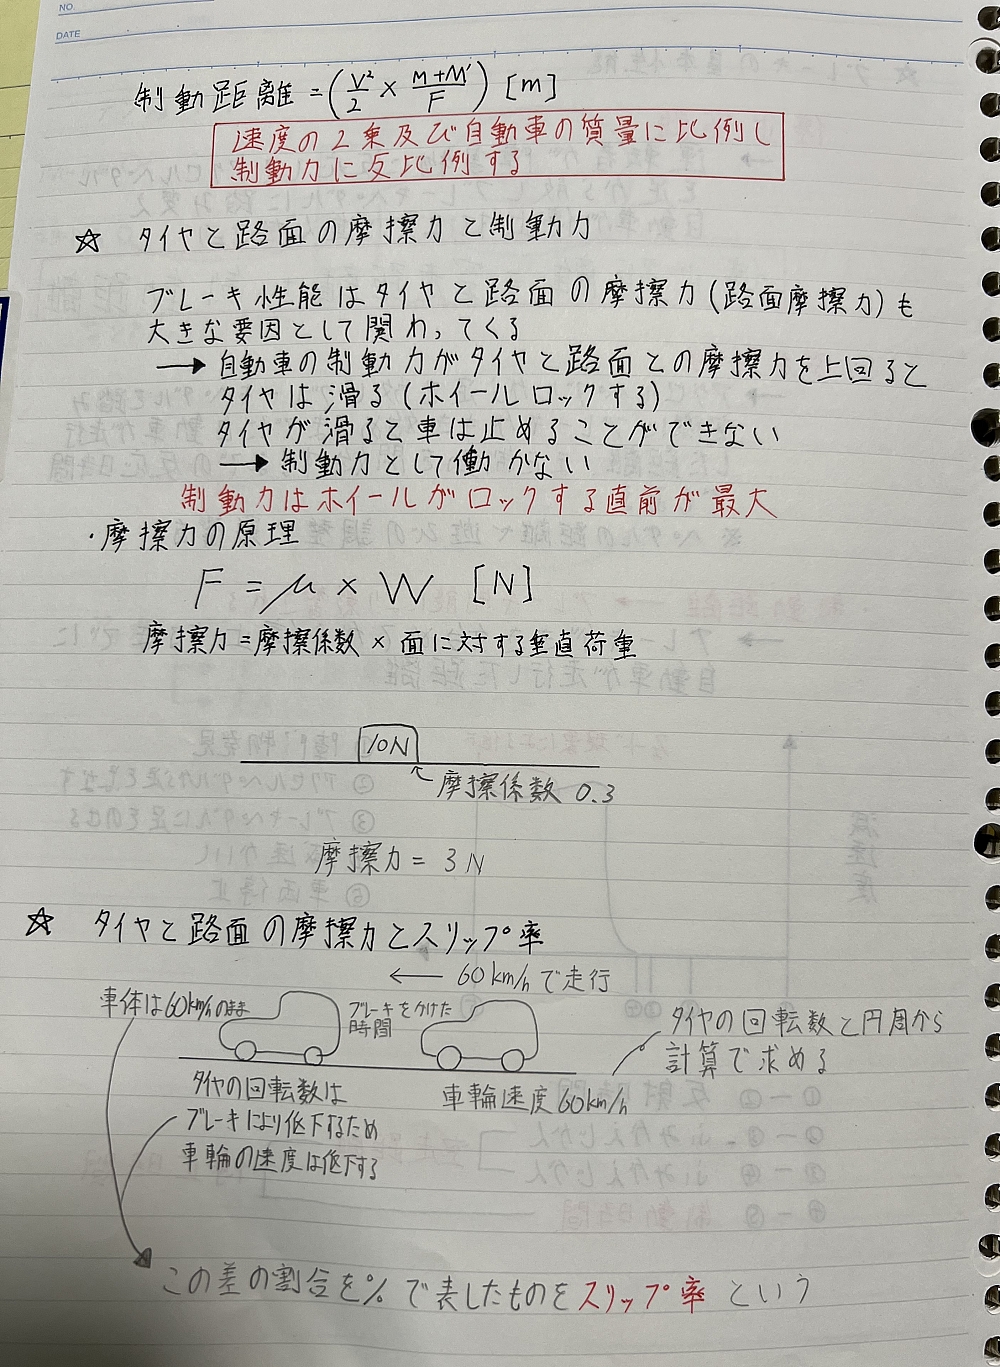 NO.
DATE
制動距離 = (V²/2 × M+M'/F) [m]
速度の2乗及び自動車の質量に比例し
制動力に反比例する
☆ タイヤと路面の摩擦力と制動力
ブレーキ性能はタイヤと路面の摩擦力(路面摩擦力)も
大きな要因として関わってくる
→ 自動車の制動力がタイヤと路面との摩擦力を上回ると
タイヤは滑る(ホイールロックする)
タイヤが滑ると車は止めることができない
→ 制動力として働かない
制動力はホイールがロックする直前が最大
・摩擦力の原理
F = μ × W [N]
摩擦力 = 摩擦係数 × 面に対する垂直荷重
10N
摩擦係数 0.3
摩擦力 = 3N
☆ タイヤと路面の摩擦力とスリップ率
← 60km/hで走行
車体は60km/hのまま
ブレーキをかけた
時間
タイヤの回転数と円周から
計算で求める
タイヤの回転数は
ブレーキにより低下するため
車輪の速度は低下する
車輪速度60km/h
この差の割合を%で表したものをスリップ率という